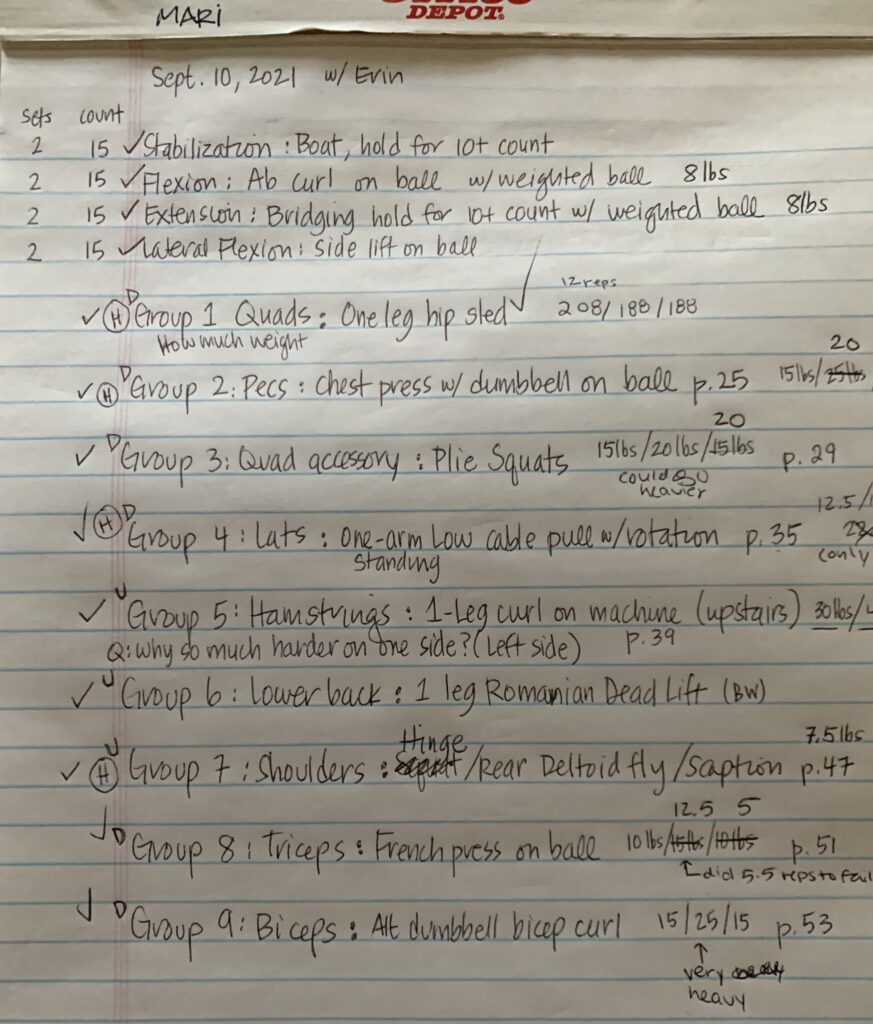 MARi
DEPOT.
Sept. 10, 2021 w/ Erin
Sets count
2 15 ✓ Stabilization : Boat, hold for 10+ count
2 15 ✓ Flexion : Ab curl on ball w/ weighted ball 8 lbs
2 15 ✓ Extension : Bridging hold for 10+ count w/ weighted ball 8lbs
2 15 ✓ Lateral Flexion : Side lift on ball
12 reps
✓ H D Group 1 Quads : One leg hip sled ✓ 208/188/188
How much weight
20
✓ H D Group 2: Pecs : Chest press w/ dumbbell on ball p.25 15lbs/25lbs
20
✓ D Group 3: Quad accessory : Plie Squats 15lbs/20lbs/15lbs p.29
could go
heavier
12.5/
✓ H D Group 4 : Lats : One-arm Low cable pull w/rotation p.35
Standing (only
✓ U Group 5: Hamstrings : 1-Leg curl on machine (upstairs) 30lbs/
Q: Why so much harder on one side? (Left side) p.39
✓ U Group 6 : Lower back : 1 leg Romanian Dead Lift (BW)
Hinge 7.5lbs
✓ H U Group 7 : Shoulders : Squat/Rear Deltoid fly/Scaption p.47
12.5 5
✓ D Group 8 : Triceps : French press on ball 10lbs/15lbs/10lbs p.51
↑ did 5.5 reps to fail
✓ D Group 9: Biceps : Alt dumbbell bicep curl 15/25/15 p.53
↑
very
heavy